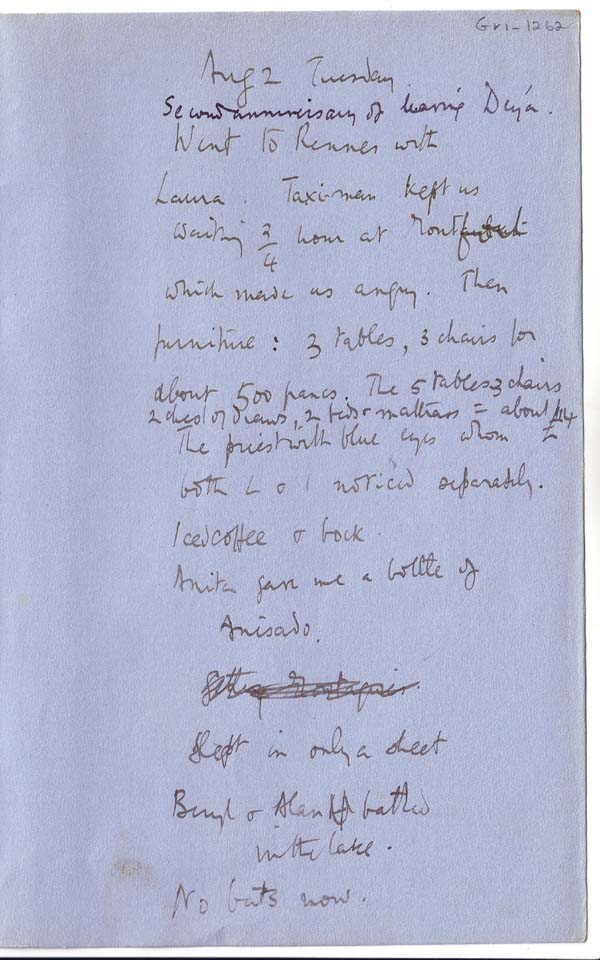 Gr1-1262
Aug 2 Tuesday
Second anniversary of leaving Deyá.
Went to Rennes with
Laura. Taxi-man kept us
waiting 3/4 hour at
which made us angry. Then
furniture: 3 tables, 3 chairs for
about 500 francs. The 5 tables 3 chairs
2 chest of draws, 2 beds + mattrass = about £14
The priest with blue eyes whom
both L & I noticed separately.
Iced coffee & bock.
Anita gave me a bottle of
Anisado.
Slept in only a sheet
Beryl & Alan bathed
in the lake.
No bats now.